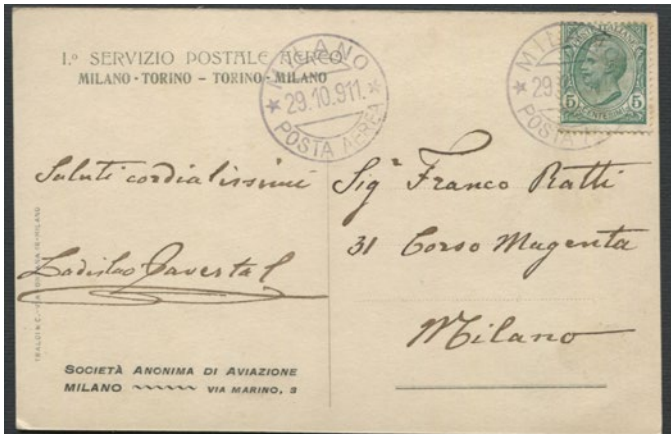 1.º SERVIZIO POSTALE AEREO
MILANO - TORINO - TORINO - MILANO
MILANO
29.10.911.
POSTA AEREA
MILANO
29.
POSTA
POSTE ITALIANE
5 5
CENTESIMI
Saluti cordialissimi
Ladislao Zavertal
Sigr Franco Ratti
31 Corso Magenta
Milano
SOCIETÀ ANONIMA DI AVIAZIONE
MILANO VIA MARINO, 3